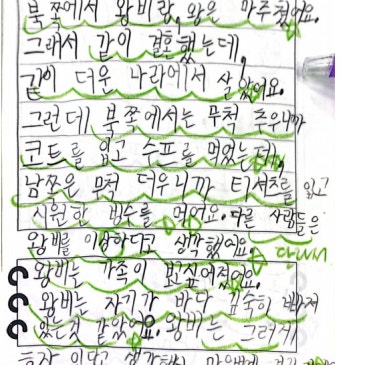 북쪽에서 왕비랑, 왕은 마주쳤어요.
그래서 같이 결혼했는데,
같이 더운 나라에서 살았어요.
그런데 북쪽에서는 무척 추우니까
코트를 입고 수프를 먹었는데,
남쪽은 무척 더우니까 티셔츠를 입고
시원한 빙수를 먹어요. 다른 사람들은
왕비를 이상하다고 생각했어요.
왕비는 가족이 보고싶어졌어요.
왕비는 자기가 바다 깊숙히 빠져
있는것 같았어요. 왕비는 그래서
혼자 있다고 생각